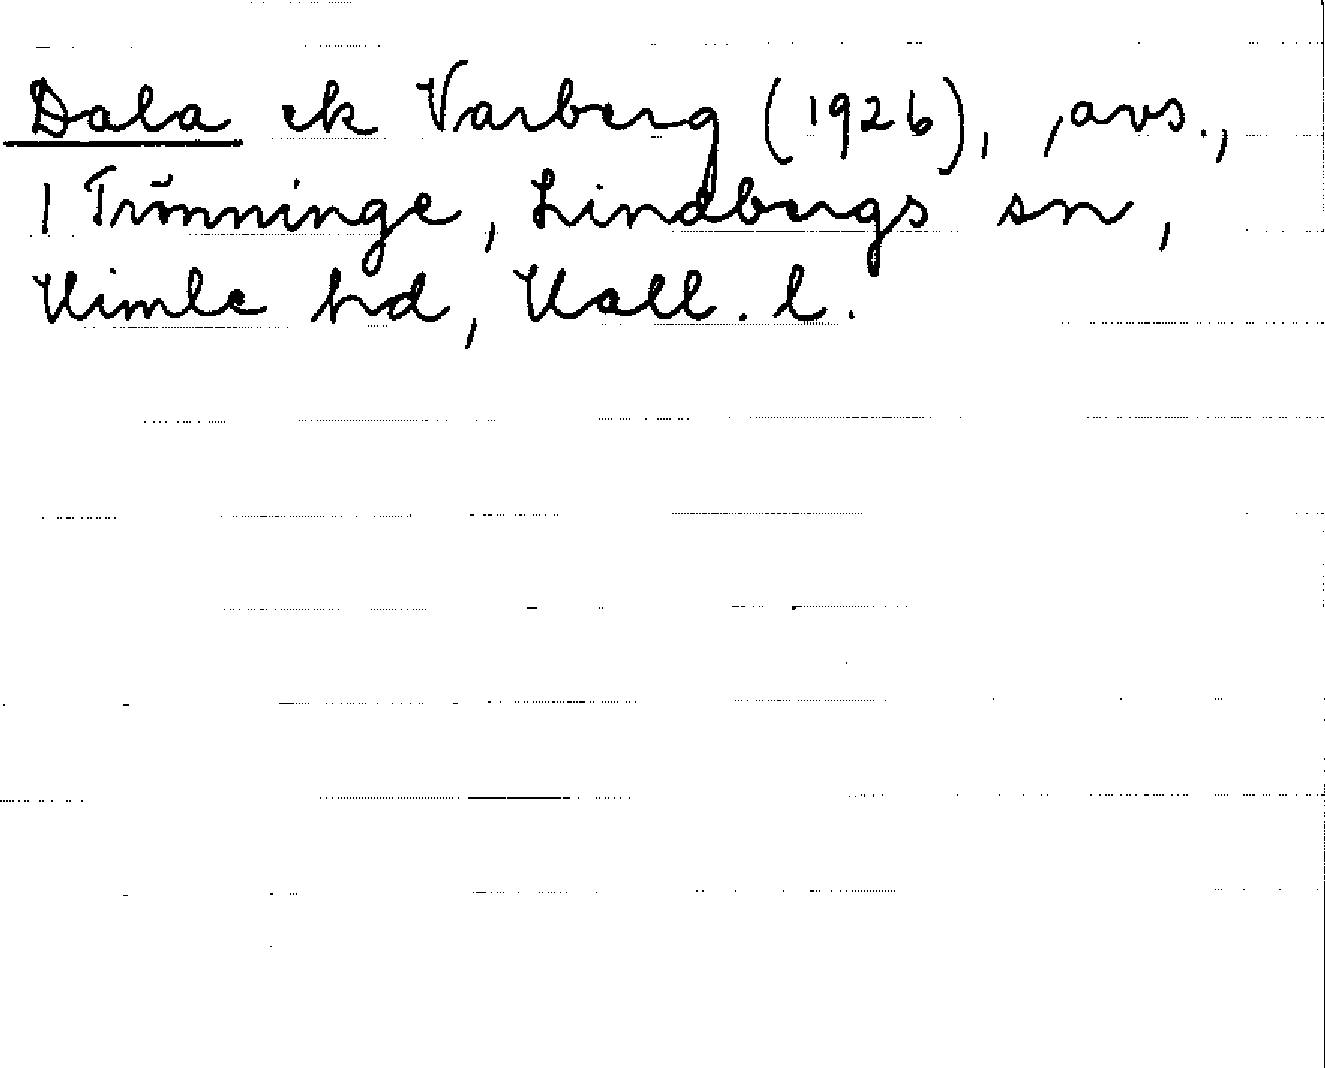 Dala ek Varberg (1926), , avs.,
1 Trönninge, Lindbergs sn,
Himle hd, Hall. l.